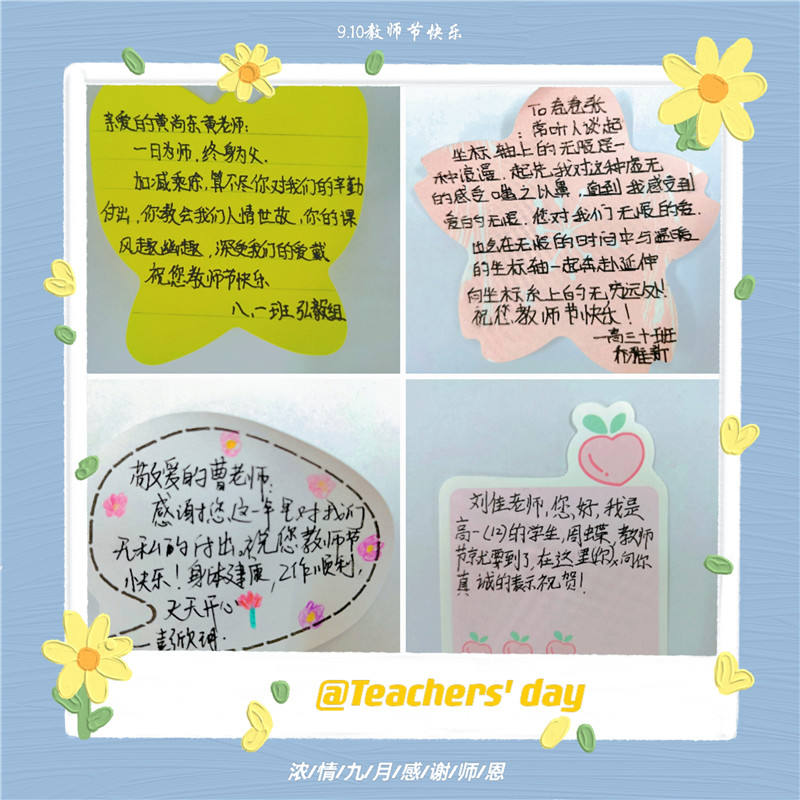 9.10教师节快乐
亲爱的黄尚东黄老师:
一日为师,终身为父.
加减乘除,算不尽你对我们的辛勤
付出,你教会我们人情世故,你的课
风趣幽趣,深受我们的爱戴
祝您教师节快乐
八、一班 弘毅组
To 卷卷张
:常听人谈起
坐标轴上的无限是一
种浪漫,起先,我对这种虚无
的感受嗤之以鼻 直到我感受到
爱的无限,您对我们无限的爱.
也会在无限的时间中与温暖
的坐标轴一起奔赴延伸
向坐标系上的无穷远处!
祝您教师节快乐!
—高三十班
敬爱的曹老师:
感谢您这一年里对我们
无私的付出,祝您教师节
快乐!身体健康,工作顺利,
天天开心
—彭欣
刘佳老师,您好,我是
高一(12)的学生,周蝶,教师
节就要到了,在这里,向你
真诚的表示祝贺!
@Teachers' day
浓/情/九/月/感/谢/师/恩